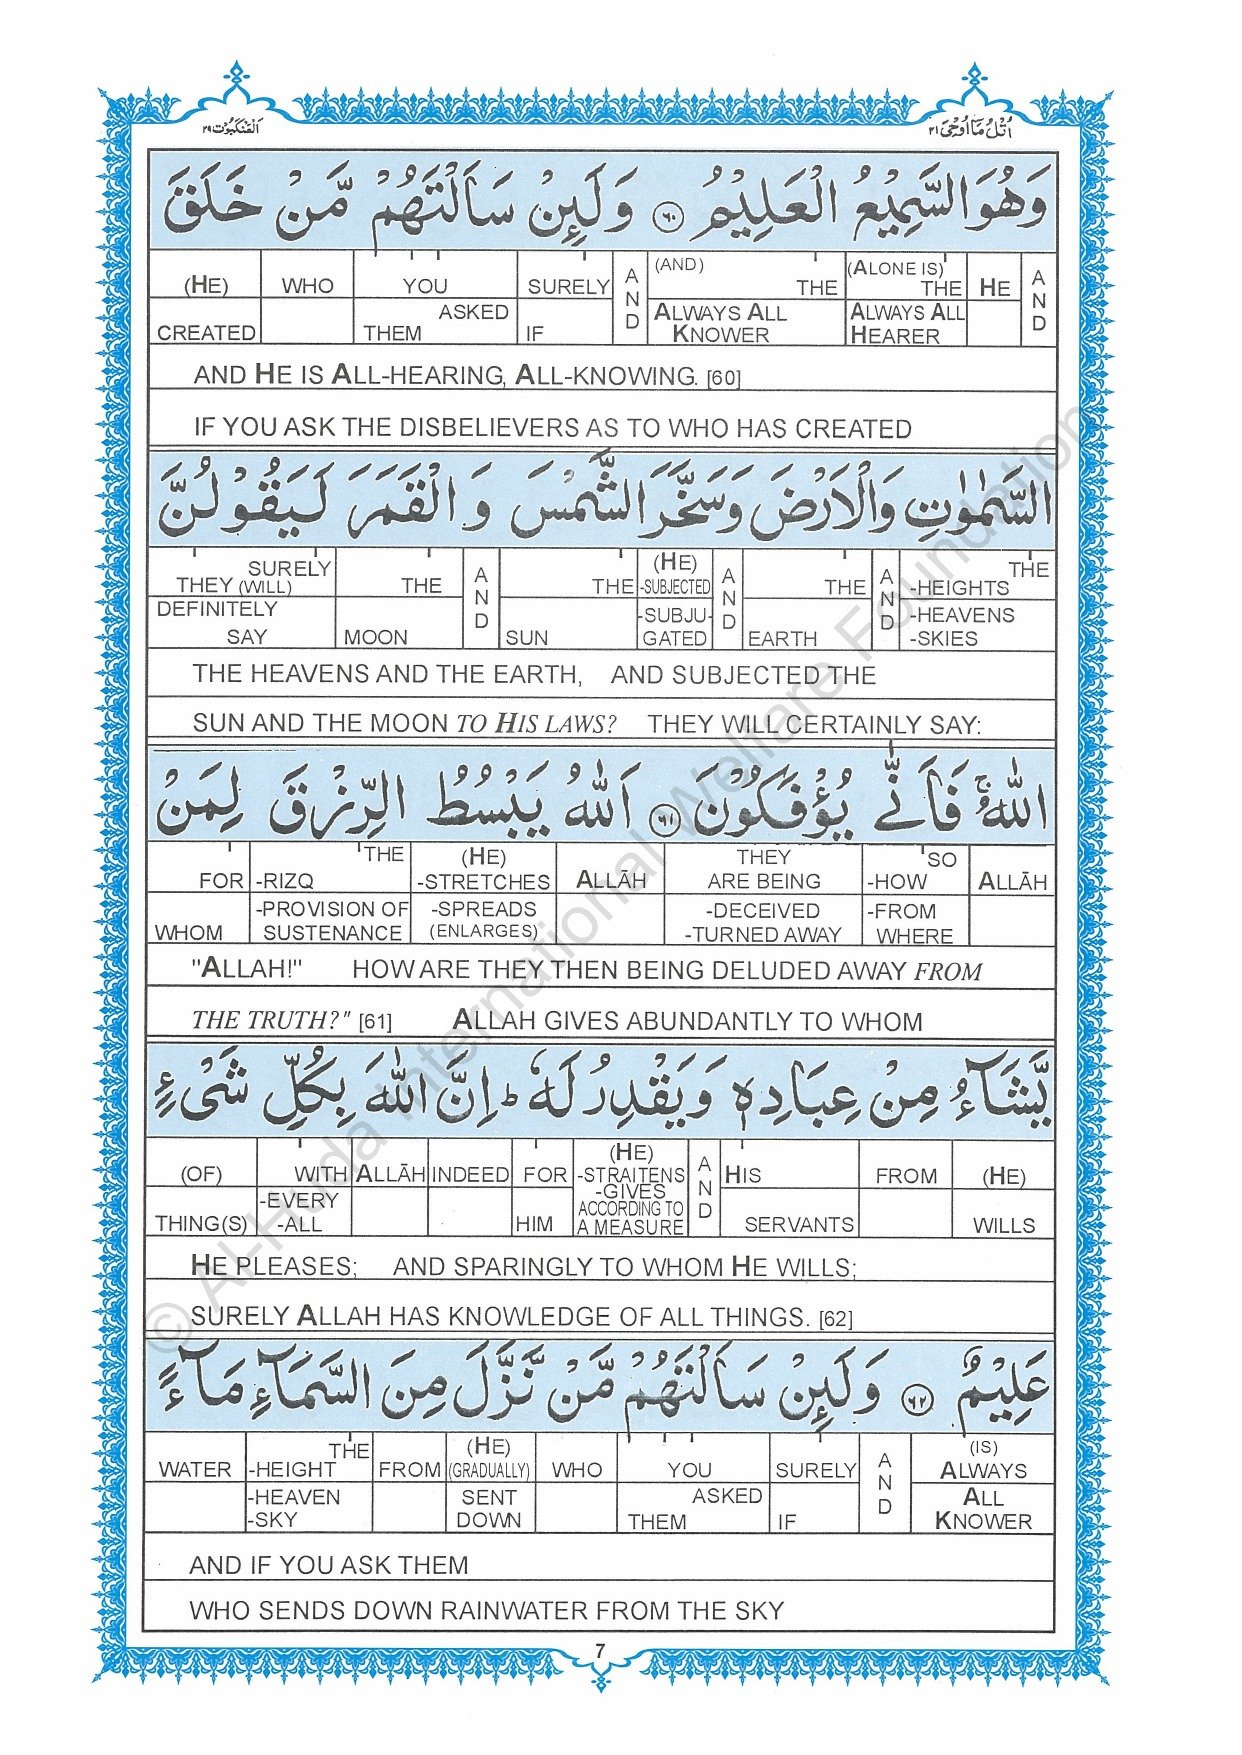 اَلْعَنْكَبُوْت ٢٩
اُتْلُ مَآ اُوْحِىَ ٢١
وَهُوَ السَّمِيْعُ الْعَلِيْمُ ۝٦٠ وَلَىِٕنْ سَاَلْتَهُمْ مَّنْ خَلَقَ
(HE) WHO YOU SURELY AND (AND) THE (ALONE IS) THE HE AND
CREATED ASKED THEM IF ALWAYS ALL KNOWER ALWAYS ALL HEARER
AND HE IS ALL-HEARING, ALL-KNOWING. [60]
IF YOU ASK THE DISBELIEVERS AS TO WHO HAS CREATED
السَّمٰوٰتِ وَالْاَرْضَ وَسَخَّرَ الشَّمْسَ وَ الْقَمَرَ لَيَقُوْلُنَّ
SURELY THEY (WILL) THE AND THE (HE) -SUBJECTED AND THE AND THE -HEIGHTS
DEFINITELY SAY MOON SUN -SUBJU-GATED EARTH -HEAVENS -SKIES
THE HEAVENS AND THE EARTH, AND SUBJECTED THE
SUN AND THE MOON TO HIS LAWS? THEY WILL CERTAINLY SAY:
اللّٰهُ ۚ فَاَنّٰى يُؤْفَكُوْنَ ۝٦١ اَللّٰهُ يَبْسُطُ الرِّزْقَ لِمَنْ
FOR THE -RIZQ (HE) -STRETCHES ALLĀH THEY ARE BEING SO -HOW ALLĀH
WHOM -PROVISION OF SUSTENANCE -SPREADS (ENLARGES) -DECEIVED -TURNED AWAY -FROM WHERE
"ALLAH!" HOW ARE THEY THEN BEING DELUDED AWAY FROM
THE TRUTH?" [61] ALLAH GIVES ABUNDANTLY TO WHOM
يَّشَآءُ مِنْ عِبَادِهٖ وَيَقْدِرُ لَهٗ ؕ اِنَّ اللّٰهَ بِكُلِّ شَىْءٍ
(OF) WITH ALLĀH INDEED FOR (HE) -STRAITENS AND HIS FROM (HE)
THING(S) -EVERY -ALL HIM -GIVES ACCORDING TO A MEASURE SERVANTS WILLS
HE PLEASES; AND SPARINGLY TO WHOM HE WILLS;
SURELY ALLAH HAS KNOWLEDGE OF ALL THINGS. [62]
عَلِيْمٌ ۝٦٢ وَلَىِٕنْ سَاَلْتَهُمْ مَّنْ نَّزَّلَ مِنَ السَّمَآءِ مَآءً
WATER THE -HEIGHT FROM (HE) (GRADUALLY) WHO YOU SURELY AND (IS) ALWAYS
-HEAVEN -SKY SENT DOWN ASKED THEM IF ALL KNOWER
AND IF YOU ASK THEM
WHO SENDS DOWN RAINWATER FROM THE SKY
7
© Al-Huda International Welfare Foundation